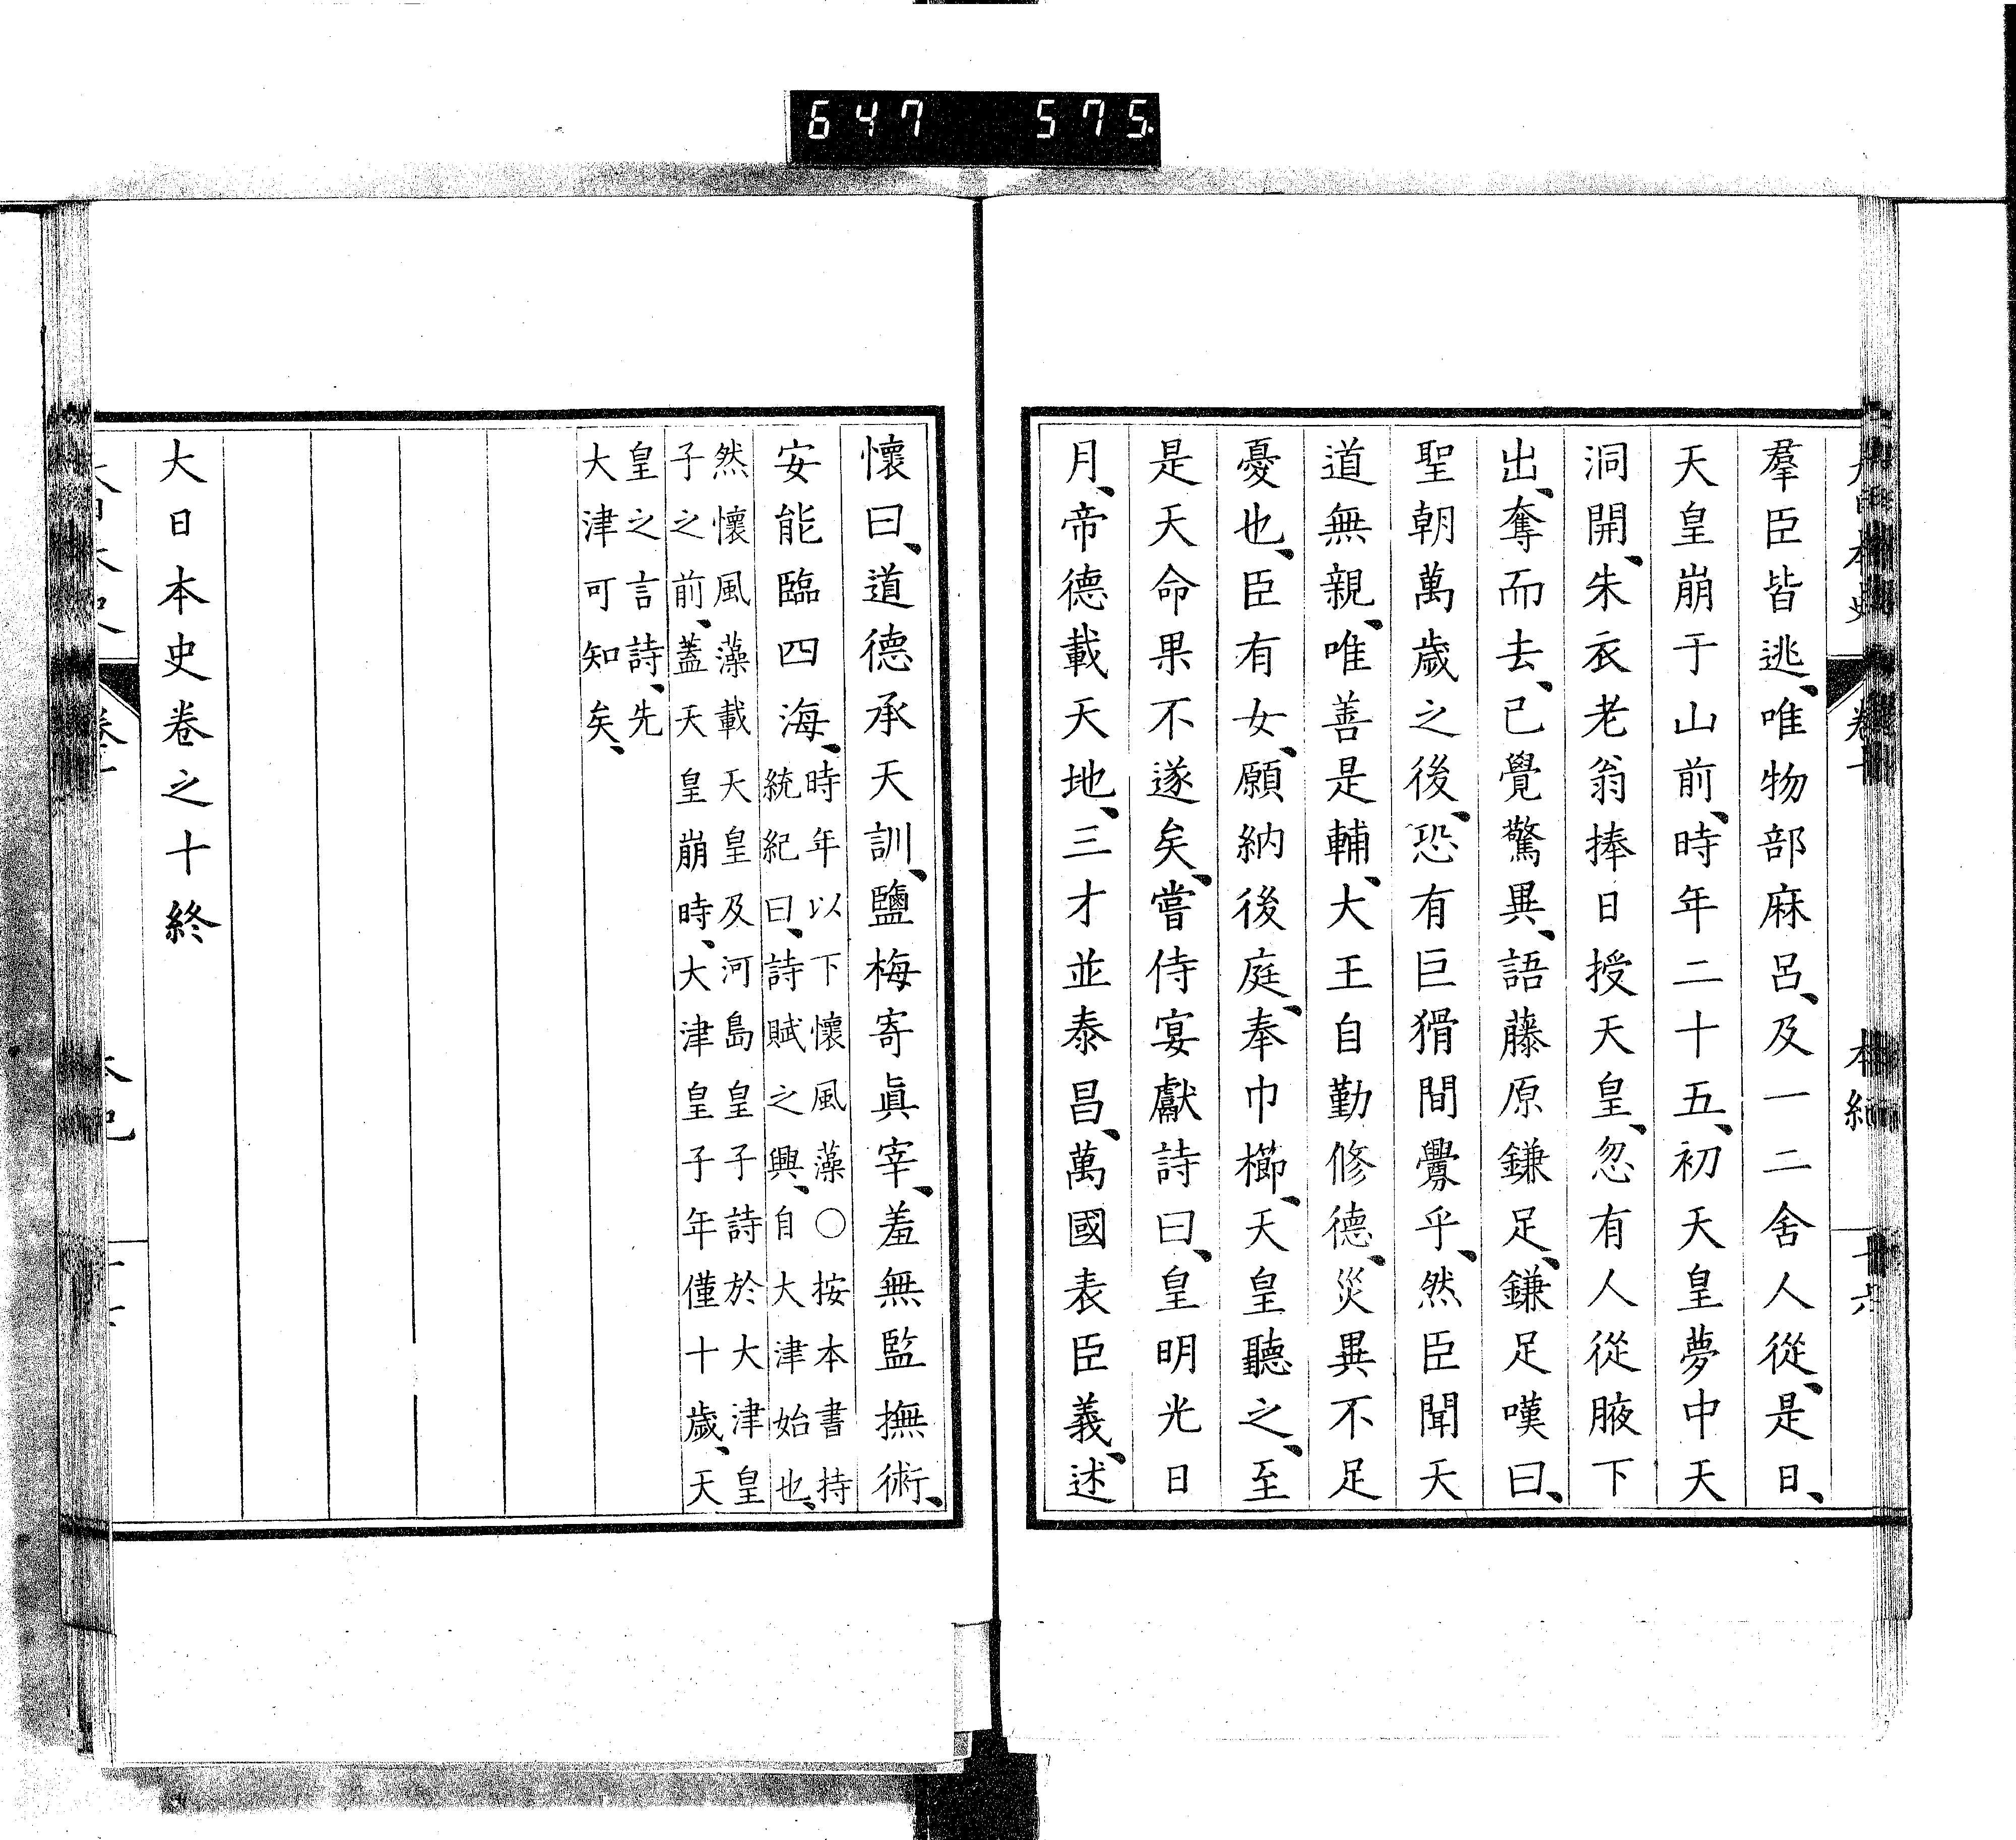 647 575.
羣臣皆逃、唯物部麻呂、及一二舍人從、是日、
天皇崩于山前、時年二十五、初天皇夢中天
洞開、朱衣老翁捧日授天皇、忽有人從腋下
出、奪而去、已覺驚異、語藤原鎌足、鎌足嘆曰、
聖朝萬歲之後、恐有巨猾間釁乎、然臣聞天
道無親、唯善是輔、大王自勤修德、災異不足
憂也、臣有女、願納後庭、奉巾櫛、天皇聽之、至
是天命果不遂矣、嘗侍宴獻詩曰、皇明光日
月、帝德載天地、三才並泰昌、萬國表臣義、述
懷曰、道德承天訓、鹽梅寄眞宰、羞無監撫術、
安能臨四海、時年以下懷風藻○按本書持
統紀曰、詩賦之興、自大津始也、
然懷風藻載天皇及河島皇子詩於大津皇
子之前、蓋天皇崩時、大津皇子年僅十歲、天
皇之言詩、先
大津可知矣、
大日本史卷之十終